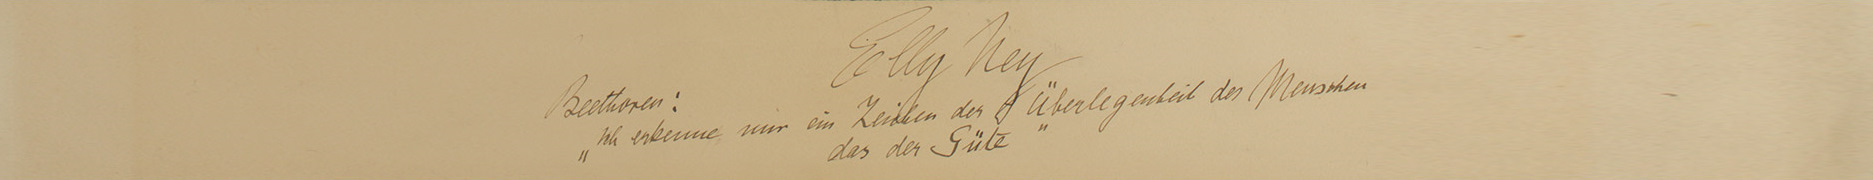 Elly Ney
Beethoven:
„Ich erkenne nur ein Zeichen der Überlegenheit des Menschen
das der Güte"